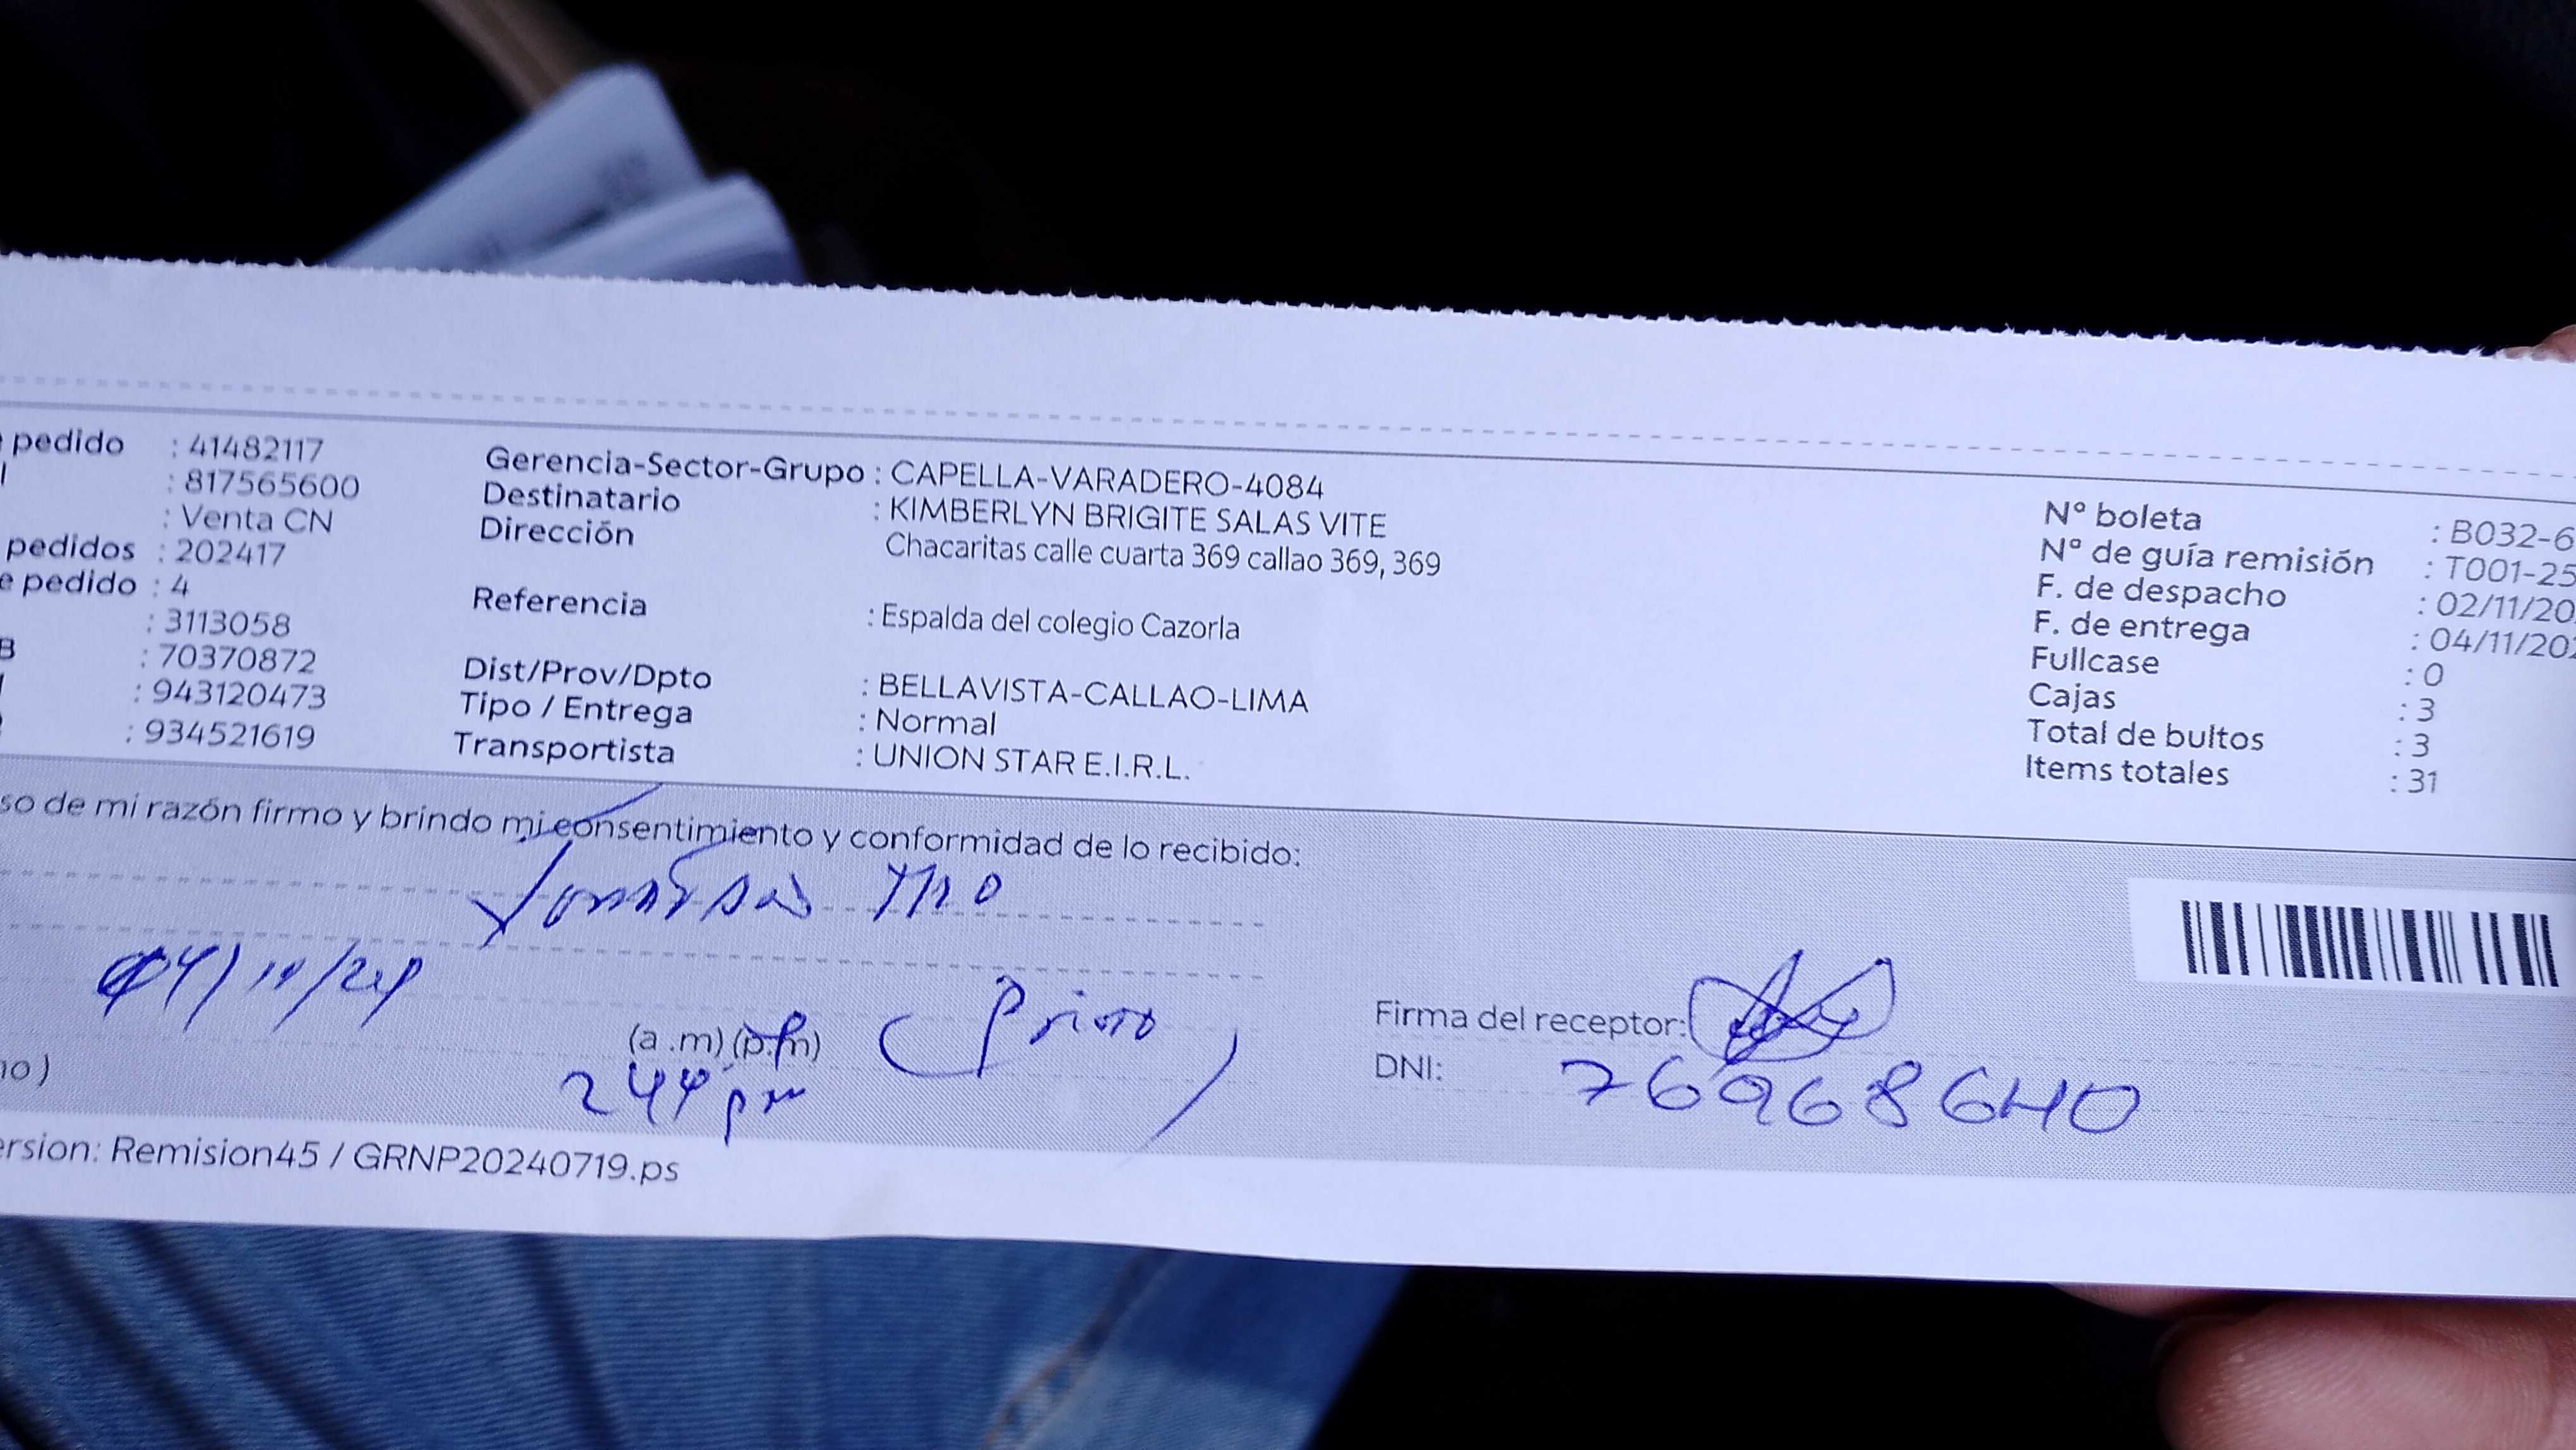 pedido : 41482117
: 817565600
: Venta CN
pedidos : 202417
e pedido : 4
: 3113058
B : 70370872
: 943120473
: 934521619
Gerencia-Sector-Grupo : CAPELLA-VARADERO-4084
Destinatario : KIMBERLYN BRIGITE SALAS VITE
Dirección Chacaritas calle cuarta 369 callao 369, 369
Referencia : Espalda del colegio Cazorla
Dist/Prov/Dpto : BELLAVISTA-CALLAO-LIMA
Tipo / Entrega : Normal
Transportista : UNION STAR E.I.R.L.
N° boleta : B032-6
N° de guía remisión : T001-25
F. de despacho : 02/11/20
F. de entrega : 04/11/202
Fullcase : 0
Cajas : 3
Total de bultos : 3
Items totales : 31
so de mi razón firmo y brindo mi consentimiento y conformidad de lo recibido:
04/11/24
(a .m) (p.m) (Primo)
244 pm
Firma del receptor:
DNI: 76968640
no )
ersion: Remision45 / GRNP20240719.ps